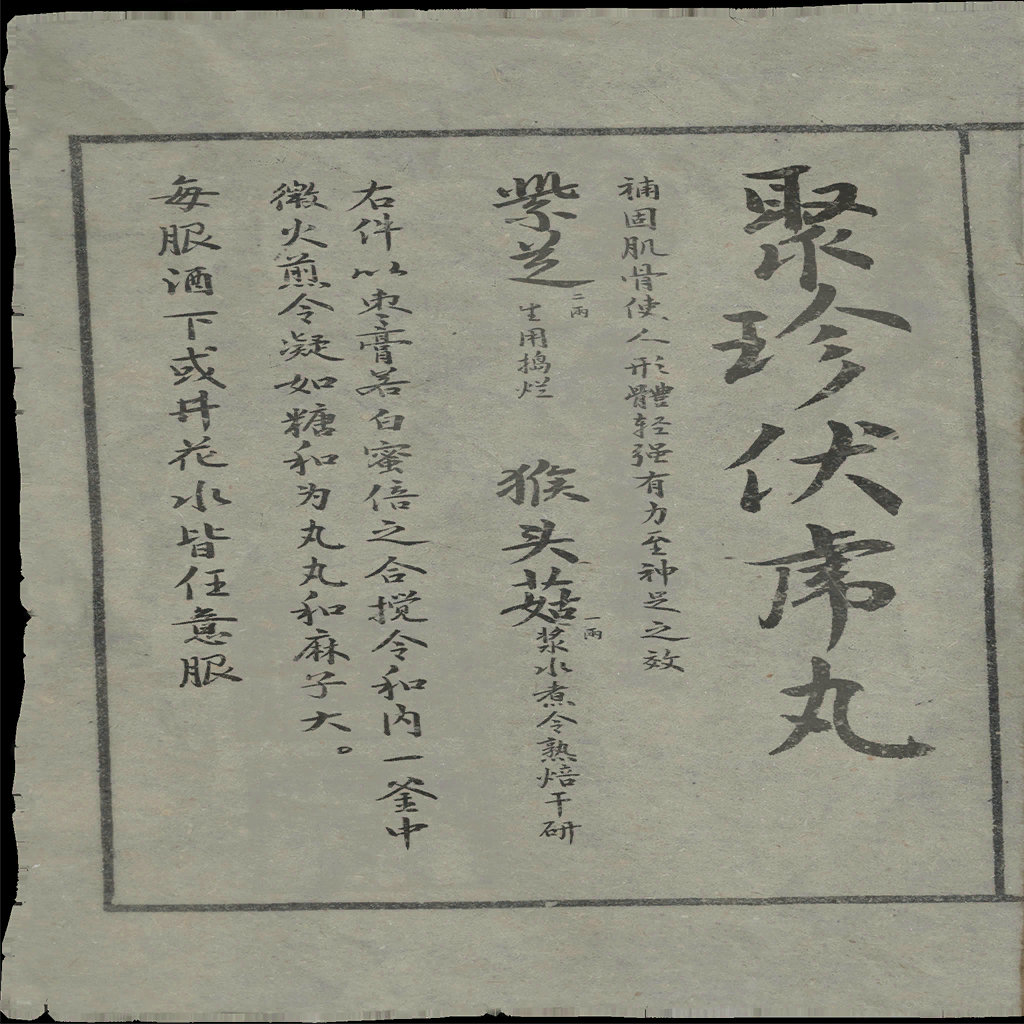 聚珍伏虎丸
補固肌骨使人形體轻强有力至神足之效
紫芝二兩生用搗烂 猴头菇一兩浆水煮令熟焙干研
右件以枣膏若白蜜倍之合搅令和内一釜中
微火煎令凝如糖和为丸丸和麻子大。
每服酒下或井花水皆任意服